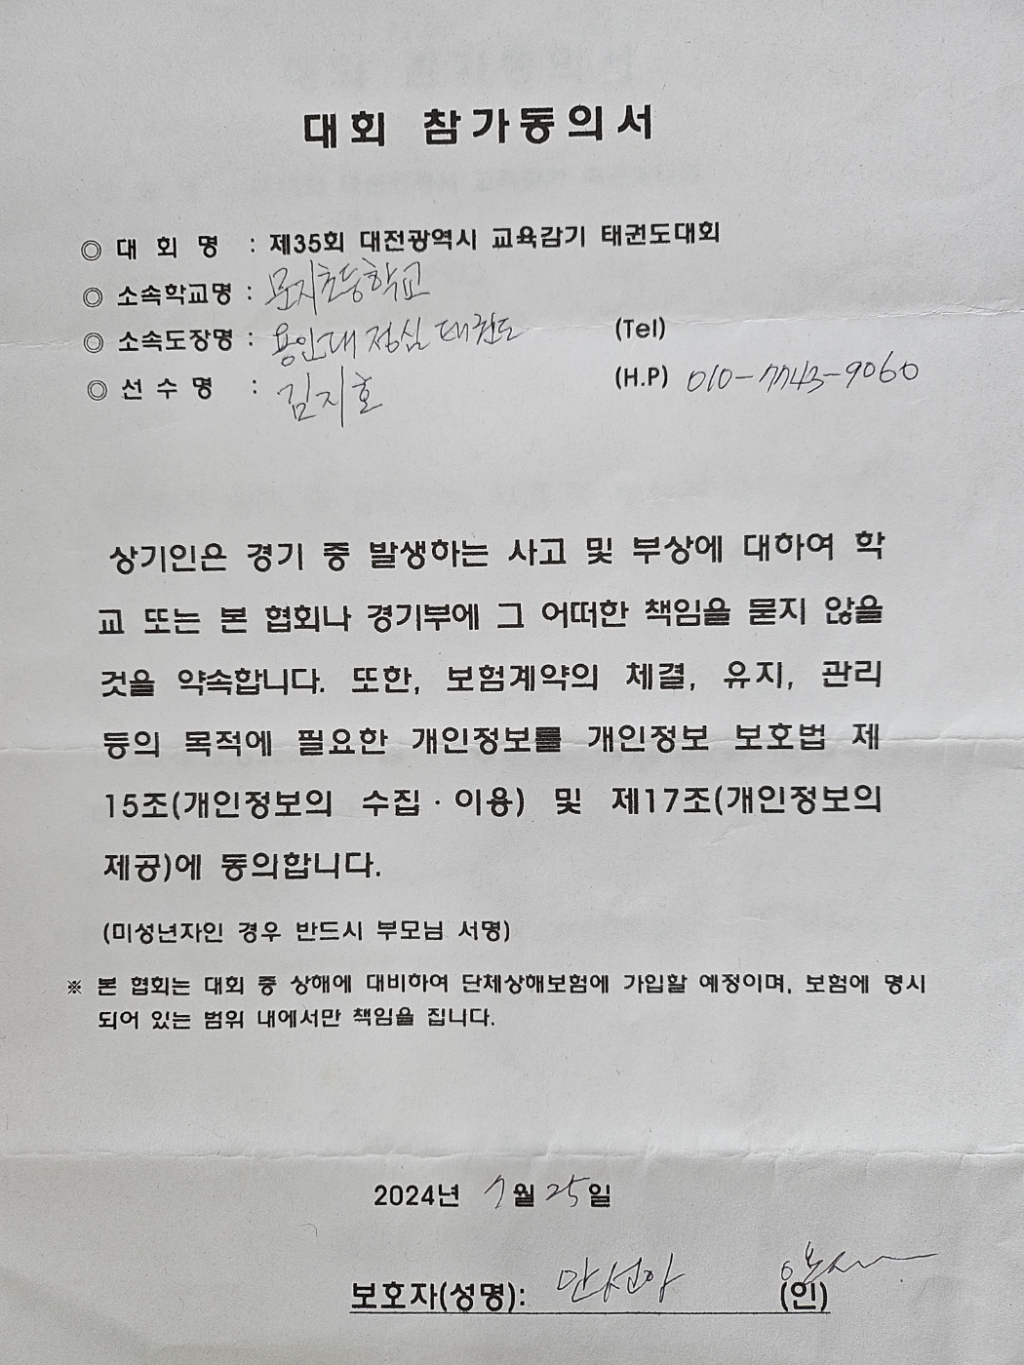 대회 참가동의서
◎ 대 회 명 : 제35회 대전광역시 교육감기 태권도대회
◎ 소속학교명 : 문지초등학교
◎ 소속도장명 : 용인대 정심 태권도 (Tel)
◎ 선 수 명 : 김지호 (H.P) 010-7743-9060
상기인은 경기 중 발생하는 사고 및 부상에 대하여 학
교 또는 본 협회나 경기부에 그 어떠한 책임을 묻지 않을
것을 약속합니다. 또한, 보험계약의 체결, 유지, 관리
등의 목적에 필요한 개인정보를 개인정보 보호법 제
15조(개인정보의 수집 · 이용) 및 제17조(개인정보의
제공)에 동의합니다.
(미성년자인 경우 반드시 부모님 서명)
※ 본 협회는 대회 중 상해에 대비하여 단체상해보험에 가입할 예정이며, 보험에 명시
되어 있는 범위 내에서만 책임을 집니다.
2024년 7월 25일
보호자(성명): 안선아 (인)